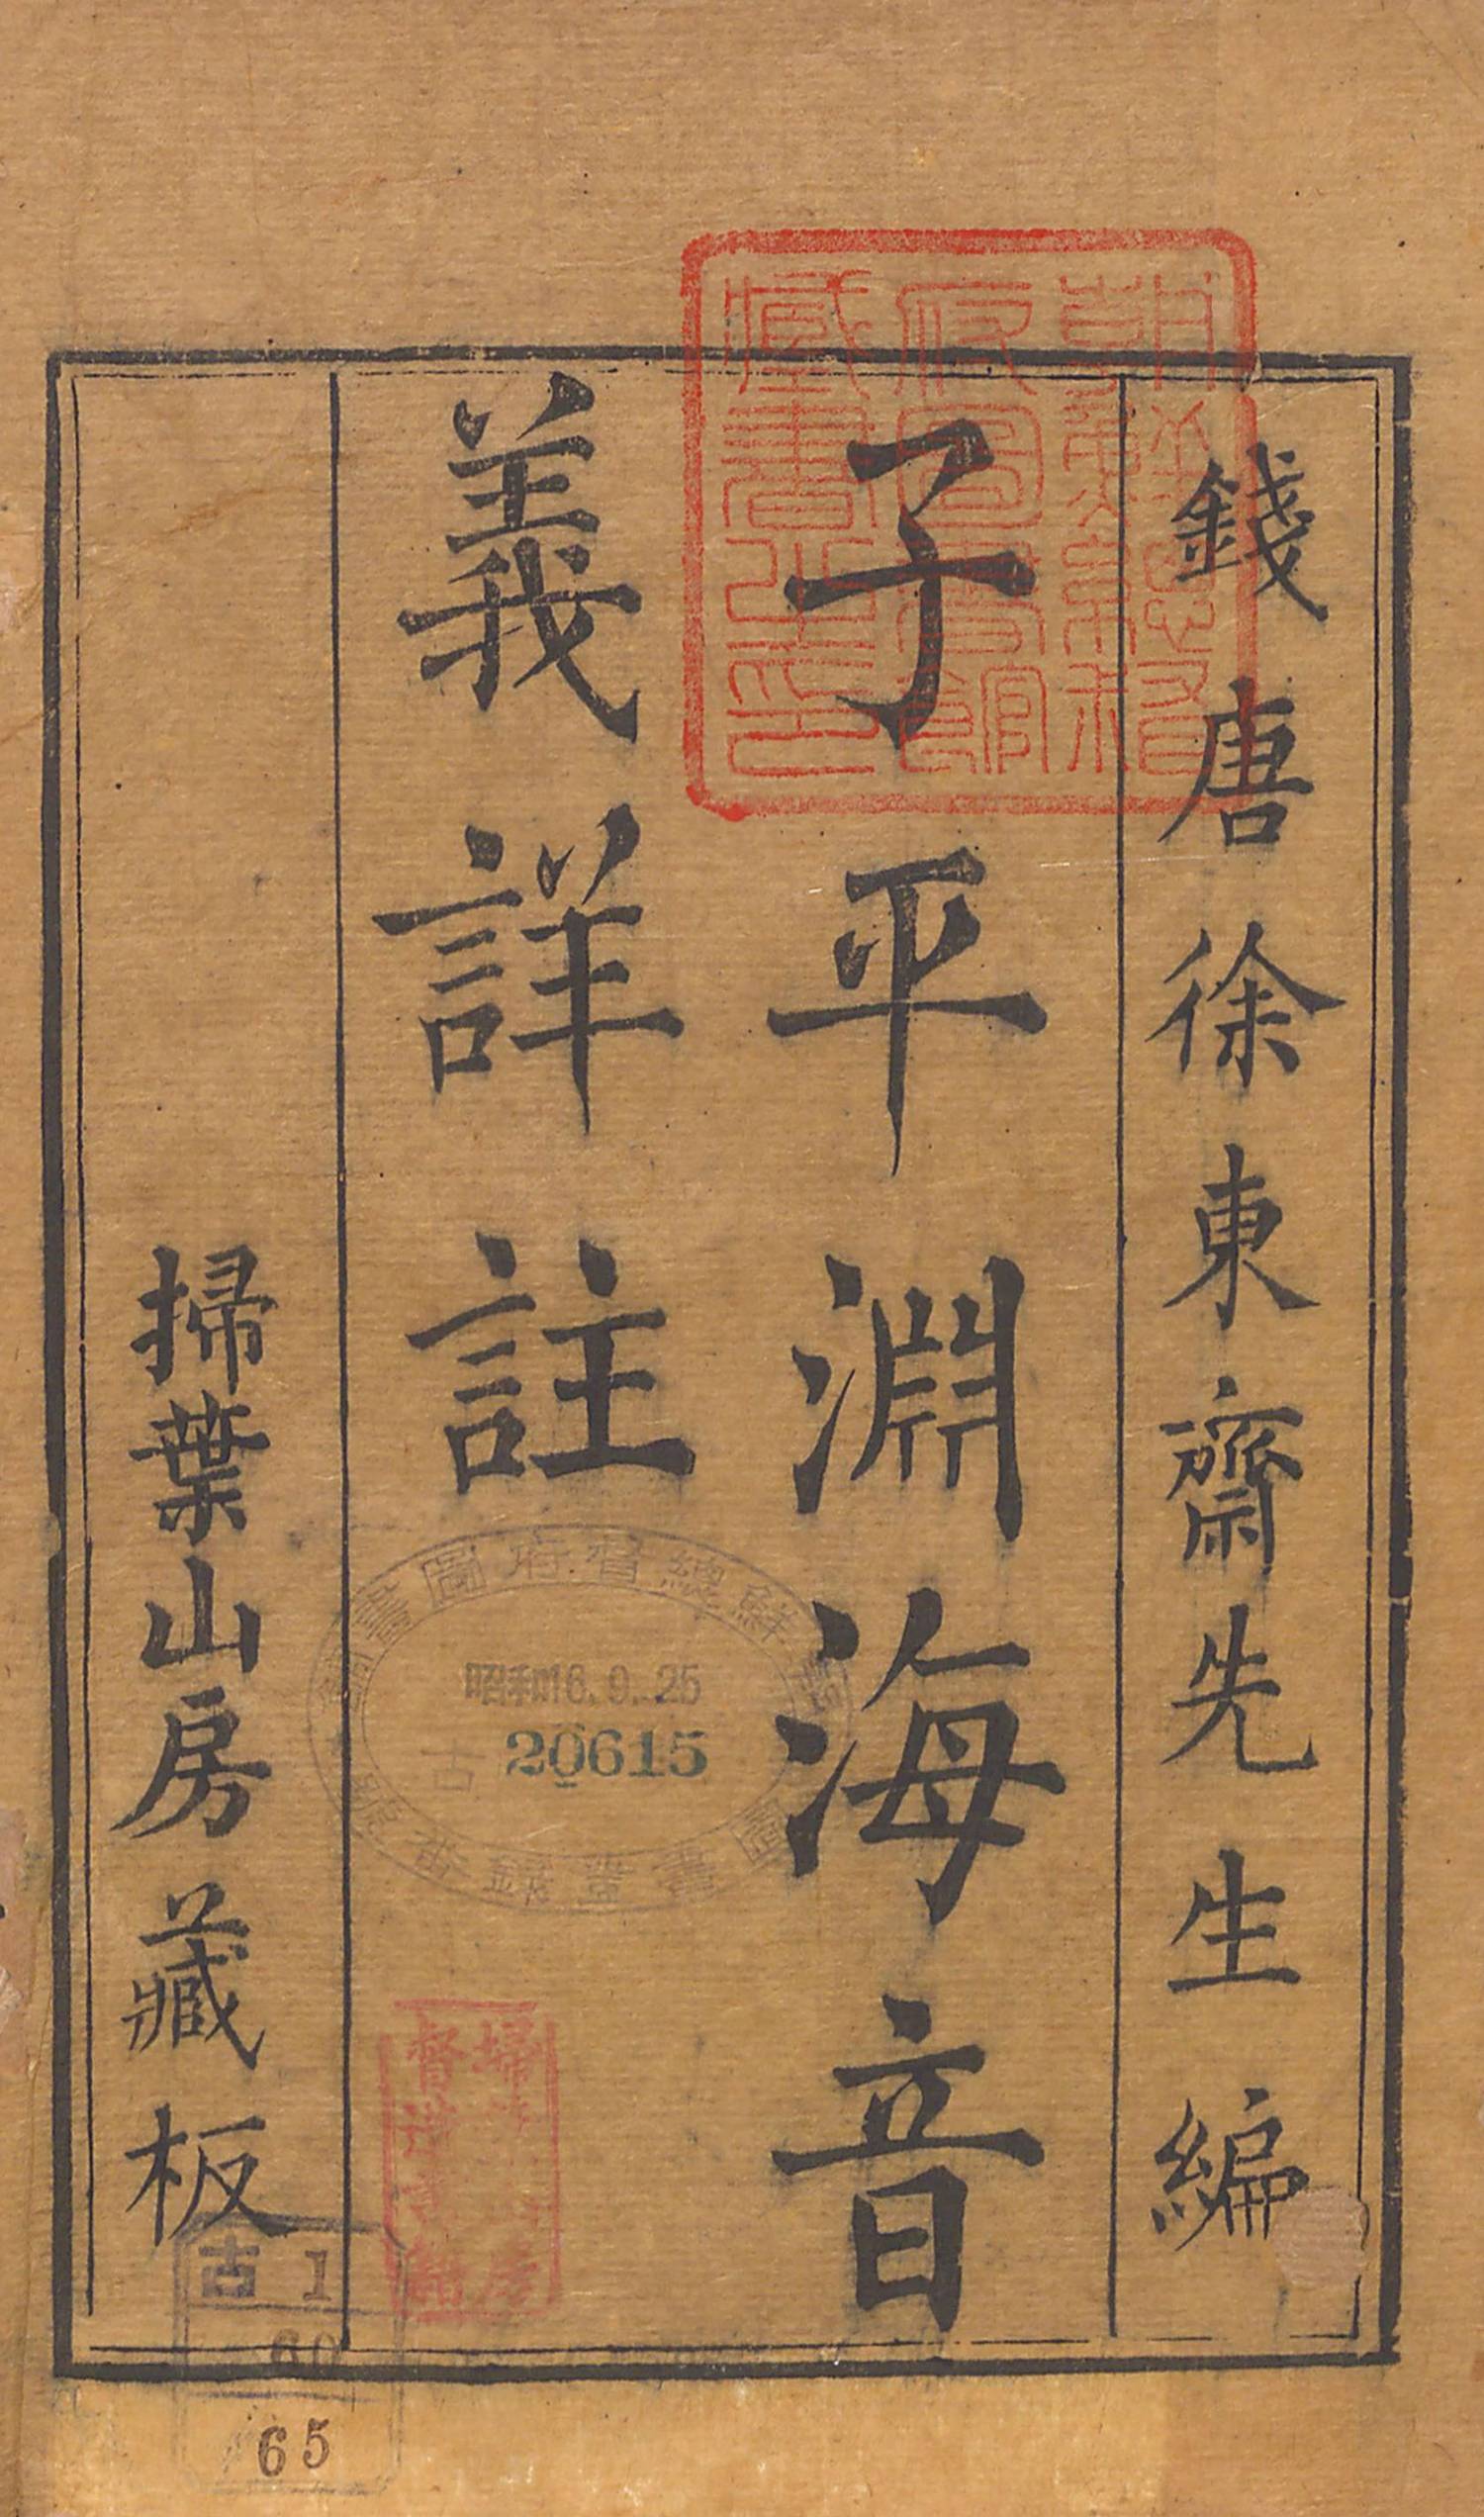 錢唐徐東齋先生編
子平淵海音
義詳註
掃葉山房藏板
朝鮮總督
府圖書館
藏書之印
鮮總督府圖書館
昭和16.9.25
20615
古
圖書登錄番號
掃
督造書籍
古 1
60
65